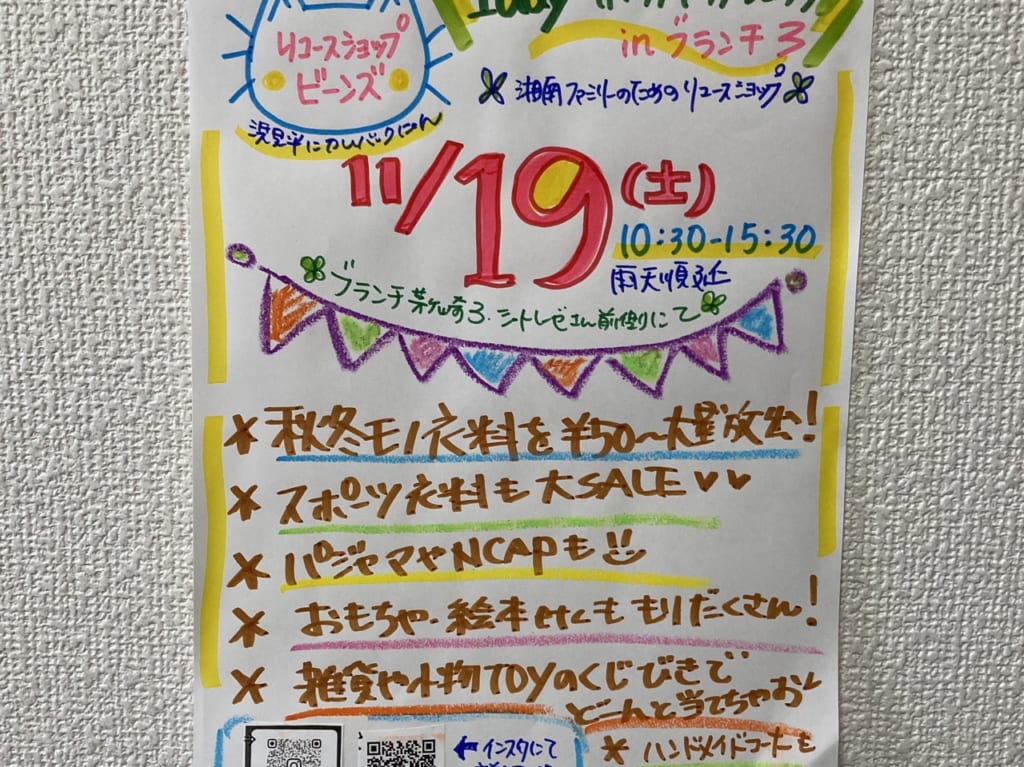 リユースショップ
ビーンズ
1day
in ブランチ3
湘南ファミリーのためのリユースショップ
11/19(土)
10:30-15:30
雨天順延
ブランチ茅ヶ崎3・シャトレーゼさん前側にて
* 秋冬モノ衣料を¥50~大量放出!
* スポーツ衣料も大SALE♥♥
* パジャマやNCAPも
* おもちゃ・絵本etcももりだくさん!
* 雑貨や小物TOYのくじびきで
どーんと当てちゃお
* ハンドメイドコーナーも
←インスタにて